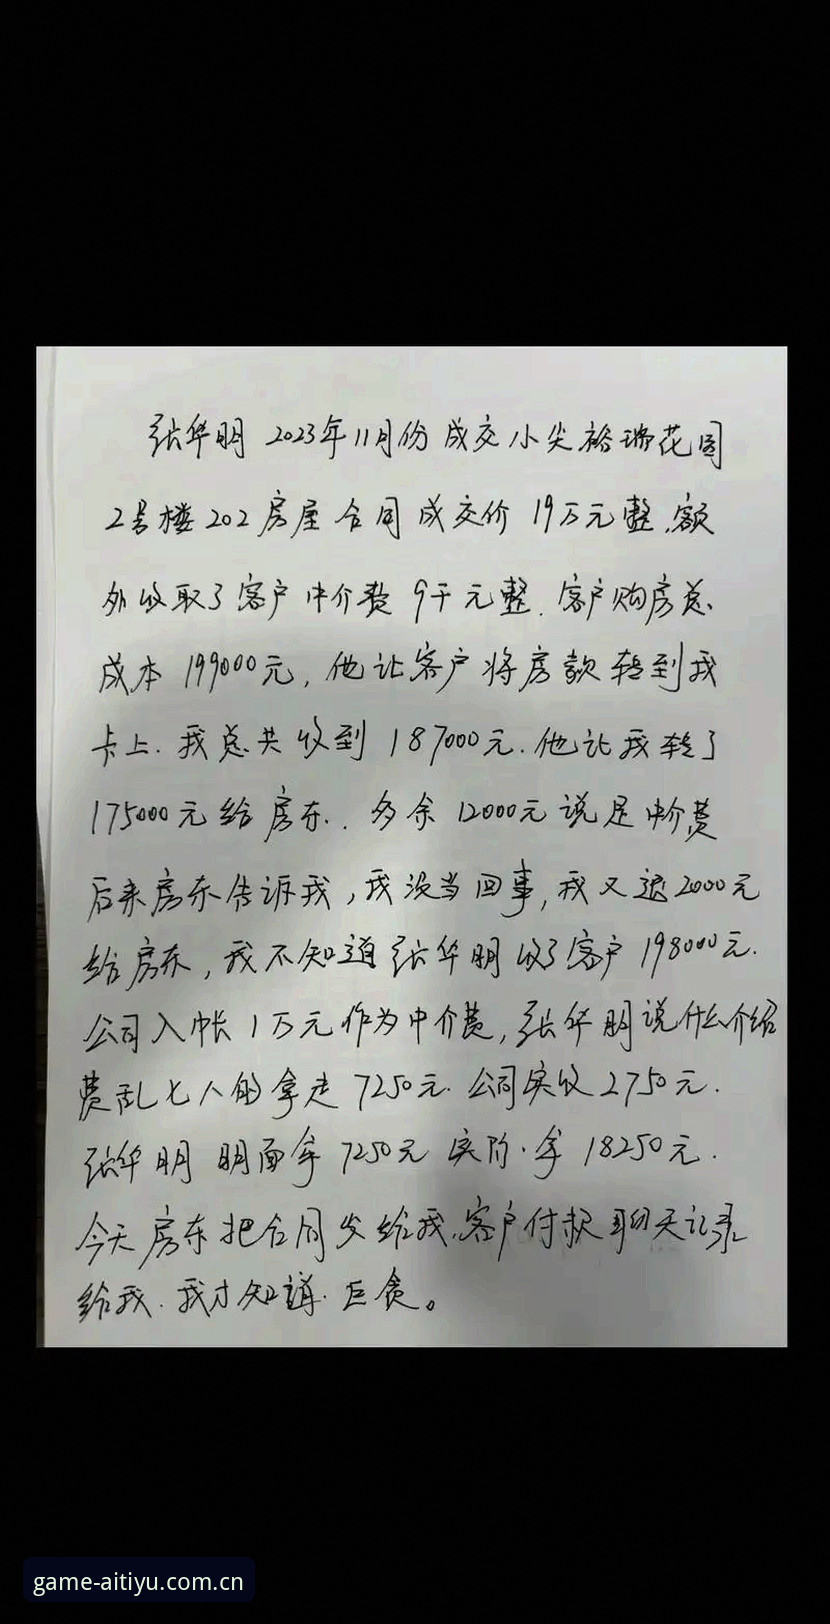 张华明 2023年11月份成交小尖裕瑞花园
2号楼202房屋合同成交价 19万元整.额
外收取了客户中介费 9千元整.客户购房总
成本 199000元,他让客户将房款转到我
卡上.我总共收到 187000元.他让我转了
175000元给房东.多余12000元说是中介费
后来房东告诉我,我没当回事,我又退2000元
给房东,我不知道张华明收了客户198000元.
公司入帐1万元作为中介费,张华明说什么介绍
费乱七八的拿走7250元.公司实收2750元.
张华明 明面拿7250元 实际.拿18250元.
今天房东把合同发给我.客户付款聊天记录
给我.我才知道.巨贪。
game-aitiyu.com.cn